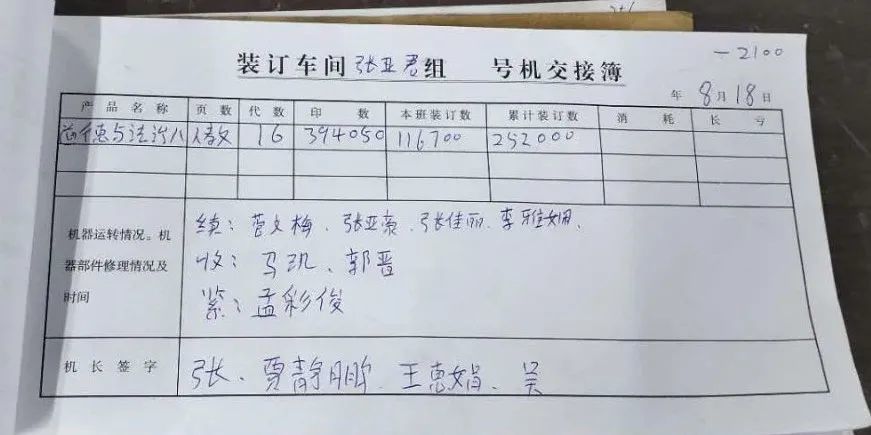 －2100
装订车间张亚君组　号机交接簿
年 8月18日
产品名称 页数 代数 印数 本班装订数 累计装订数 消耗 长亏
道德与法治八 人教 16 394050 116700 252000
机器运转情况。机器部件修理情况及时间
续：菅文梅、张亚荣、张佳丽、李雅娟、
收：马矾、郭晋
紧：孟彩俊
机长签字 张、贾静鹏、王惠娟、吴